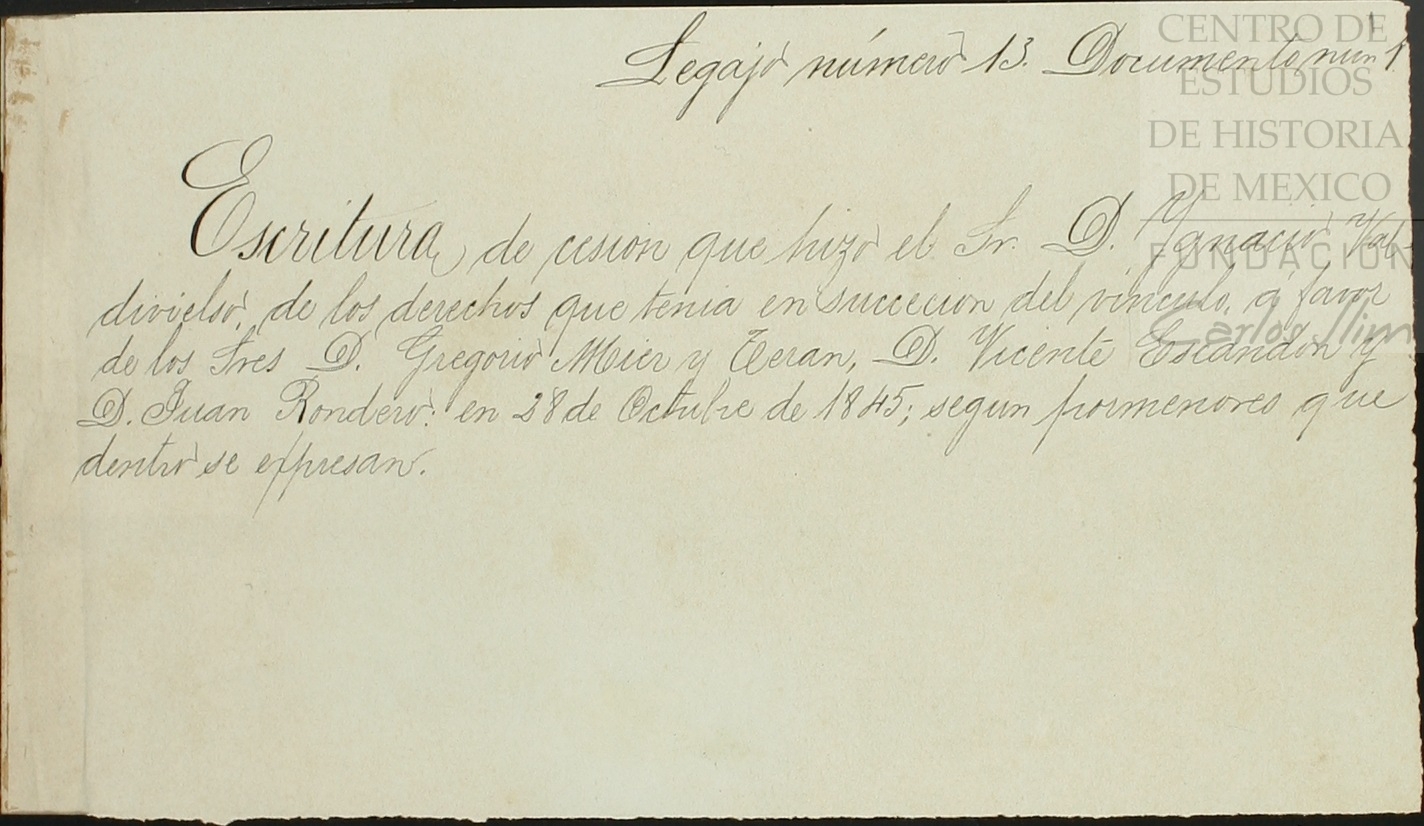 Legajo número 13. Documento núm 1
CENTRO DE
ESTUDIOS
DE HISTORIA
DE MEXICO
FUNDACION
Carlos Slim
Escritura de cesion que hizo el Sr. D. Ygnacio Val-
divielso, de los derechos que tenia en succecion del vinculo, á favor
de los Sres D. Gregorio Mier y Teran, D. Vicente Escandón y
D. Juan Rondero: en 28 de Octubre de 1845; segun pormenores que
dentro se expresan.